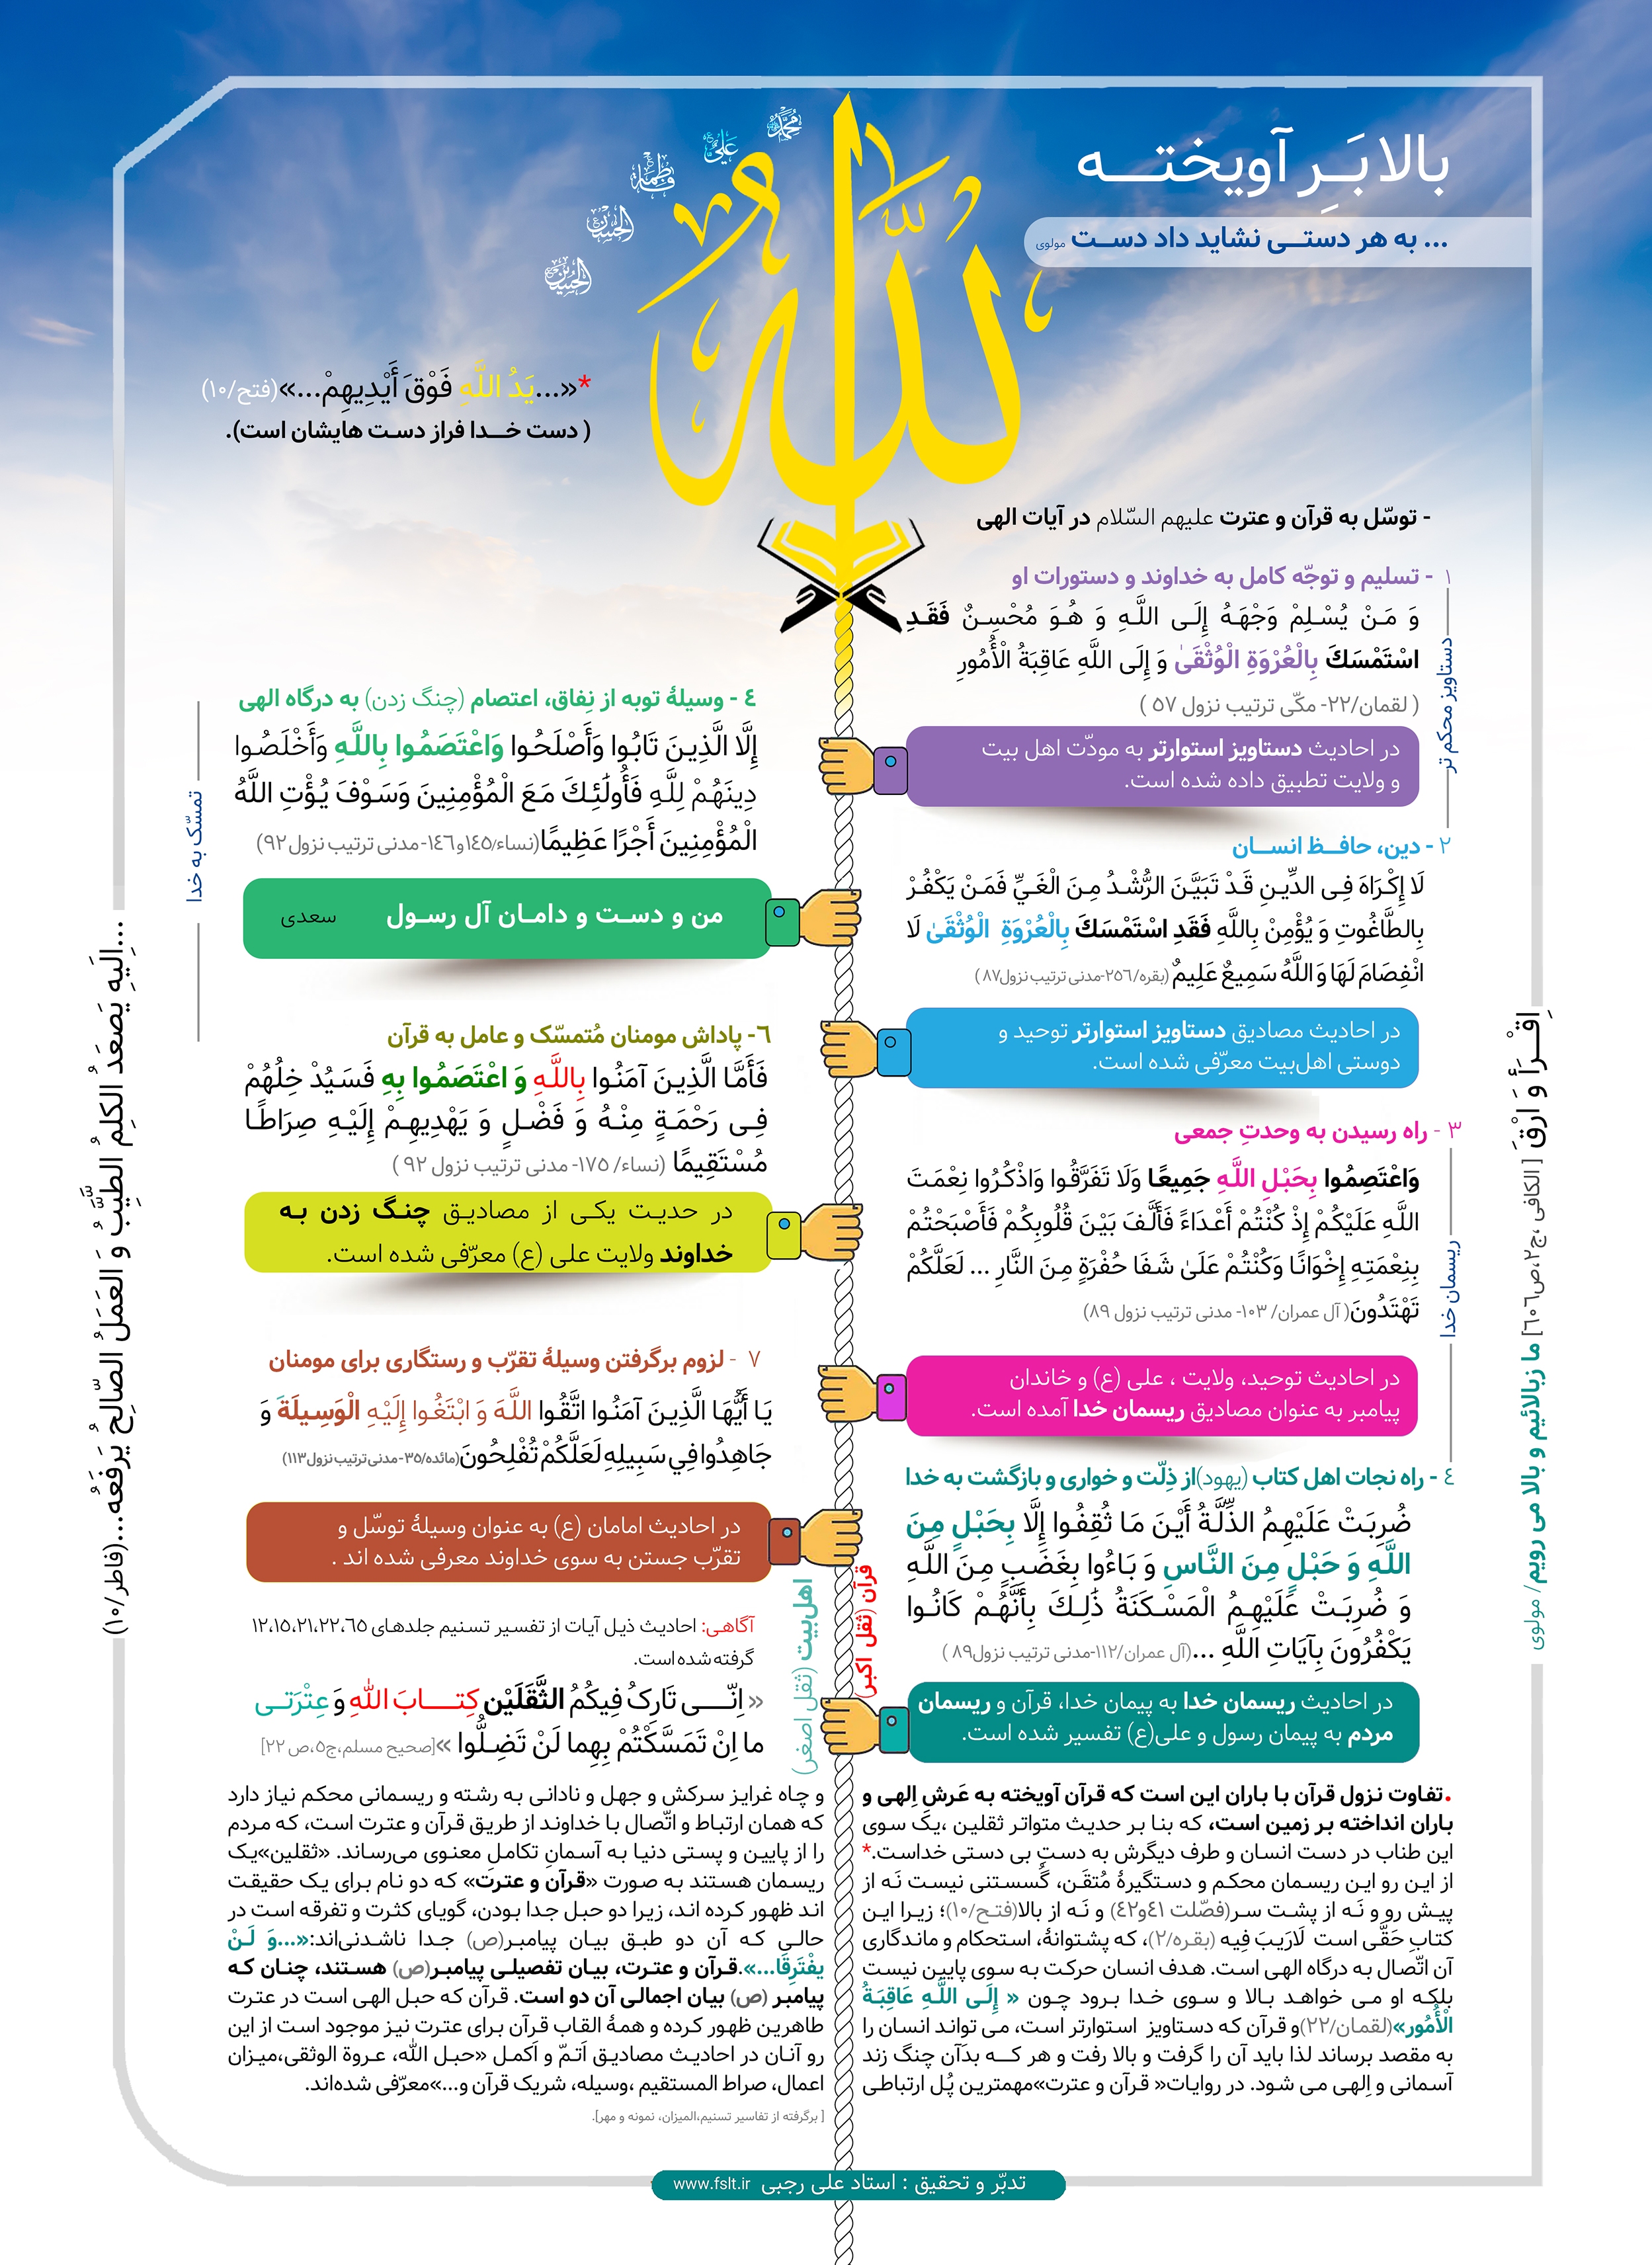 بالا بَـرِ آویختـــه
... به هر دستـــی نشاید داد دســت مولوی
محمّد
علیّ
فاطمة
الحسن
الحسین
الله
*«...یَدُ اللَّهِ فَوْقَ أَیْدِیهِمْ...»(فتح/۱۰)
( دست خــدا فراز دست هایشان است).
- توسّل به قرآن و عترت علیهم السّلام در آیات الهی
۱ - تسلیم و توجّه کامل به خداوند و دستورات او
وَ مَـنْ یُسْـلِمْ وَجْهَـهُ إِلَـی اللَّـهِ وَ هُـوَ مُحْسِـنٌ فَقَـدِ
اسْتَمْسَكَ بِالْعُرْوَةِ الْوُثْقَىٰ وَ إِلَى اللَّهِ عَاقِبَةُ الْأُمُورِ
( لقمان/۲۲- مکّی ترتیب نزول ۵۷ )
در احادیث دستاویز استوارتر به مودّت اهل بیت
و ولایت تطبیق داده شده است.
دستاویز محکم تر
۲ - دین، حافــظ انســان
لَا إِكْـرَاهَ فِـی الدِّیـنِ قَـدْ تَبَیَّـنَ الرُّشْـدُ مِـنَ الْغَـيِّ فَمَـنْ یَكْفُـرْ
بِالطَّاغُوتِ وَ یُؤْمِنْ بِاللَّهِ فَقَدِ اسْتَمْسَكَ بِالْعُرْوَةِ الْوُثْقَىٰ لَا
انْفِصَامَ لَهَا وَ اللَّهُ سَمِیعٌ عَلِیمٌ (بقره/۲۵۶-مدنی ترتیب نزول۸۷ )
در احادیث مصادیق دستاویز استوارتر توحید و
دوستی اهل‌بیت معرّفی شده است.
۳ - راه رسیدن به وحدتِ جمعی
وَاعْتَصِمُوا بِحَبْلِ اللَّـهِ جَمِیعًـا وَلَا تَفَرَّقُـوا وَاذْكُـرُوا نِعْمَـتَ
اللَّـهِ عَلَیْكُـمْ إِذْ كُنْتُـمْ أَعْـدَاءً فَأَلَّـفَ بَیْـنَ قُلُوبِكُـمْ فَأَصْبَحْتُـمْ
بِنِعْمَتِـهِ إِخْوَانًـا وَكُنْتُـمْ عَلَىٰ شَـفَا حُفْـرَةٍ مِـنَ النَّـارِ ... لَعَلَّكُمْ
تَهْتَدُونَ( آل عمران/ ۱۰۳- مدنی ترتیب نزول ۸۹)
در احادیث توحید، ولایت ، علی (ع) و خاندان
پیامبر به عنوان مصادیق ریسمان خدا آمده است.
ریسمان خدا
٤ - راه نجات اهل کتاب (یهود)از ذِلّت و خواری و بازگشت به خدا
ضُرِبَـتْ عَلَیْهِـمُ الذِّلَّـةُ أَیْـنَ مَـا ثُقِفُـوا إِلَّا بِحَبْـلٍ مِـنَ
اللَّـهِ وَ حَبْـلٍ مِـنَ النَّـاسِ وَ بَـاءُوا بِغَضَـبٍ مِـنَ اللَّـهِ
وَ ضُرِبَـتْ عَلَیْهِـمُ الْمَسْـكَنَةُ ذَٰلِـكَ بِأَنَّهُـمْ كَانُـوا
یَكْفُرُونَ بِآیَاتِ اللَّهِ ...(آل عمران/۱۱۲-مدنی ترتیب نزول۸۹ )
در احادیث ریسمان خدا به پیمان خدا، قرآن و ریسمان
مردم به پیمان رسول و علی(ع) تفسیر شده است.
٤ - وسیلهٔ توبه از نِفاق، اعتصام (چنگ زدن) به درگاه الهی
إِلَّا الَّذِیـنَ تَابُـوا وَأَصْلَحُـوا وَاعْتَصَمُـوا بِاللَّـهِ وَأَخْلَصُـوا
دِینَهُـمْ لِلَّـهِ فَأُولَٰئِـكَ مَـعَ الْمُؤْمِنِیـنَ وَسَـوْفَ یُـؤْتِ اللَّهُ
الْمُؤْمِنِینَ أَجْرًا عَظِیمًا(نساء/۱٤۵و۱٤۶-مدنی ترتیب نزول۹۲)
من و دسـت و دامـان آل رسـول سعدی
تمسّک به خدا
٦- پاداش مومنان مُتمسّک و عامل به قرآن
فَأَمَّا الَّذِیـنَ آمَنُـوا بِاللَّـهِ وَ اعْتَصَمُـوا بِهِ فَسَـیُدْ خِلُهُمْ
فِـی رَحْمَـةٍ مِنْـهُ وَ فَضْـلٍ وَ یَهْدِیهِـمْ إِلَیْـهِ صِرَاطًـا
مُسْتَقِیمًا (نساء/ ۱۷۵- مدنی ترتیب نزول ۹۲ )
در حدیـث یکـی از مصادیـق چنـگ زدن بـه
خداوند ولایت علی (ع) معرّفی شده است.
۷ - لزوم برگرفتن وسیلهٔ تقرّب و رستگاری برای مومنان
یَـا أَیُّهَـا الَّذِیـنَ آمَنُـوا اتَّقُـوا اللَّـهَ وَ ابْتَغُـوا إِلَیْـهِ الْوَسِـیلَةَ وَ
جَاهِدُوا فِي سَبِیلِهِ لَعَلَّكُمْ تُفْلِحُونَ(مائده/۳۵-مدنی ترتیب نزول۱۱۳)
در احادیث امامان (ع) به عنوان وسیلهٔ توسّل و
تقرّب جستن به سوی خداوند معرفی شده اند .
آگاهی: احادیث ذیل آیات از تفسیر تسنیم جلدهای ۱۲،۱۵،۲۱،۲۲،۶۵
گرفته شده است.
« اِنّـــی تَارِکُ فِیکُمُ الثَّقَلَیْن کِتـــابَ اللهِ وَ عِتْرَتـی
ما اِنْ تَمَسَّکْتُمْ بِهِما لَنْ تَضِـلُّوا »[صحیح مسلم،ج۵،ص ۲۲]
قرآن (ثقل اکبر)
اهل‌بیت (ثقل اصغر)
.تفاوت نزول قرآن با باران این است که قرآن آویخته به عَرش اِلهی و
باران انداخته بر زمین است، که بنا بر حدیث متواتر ثقلین ،یک سوی
این طناب در دست انسان و طرف دیگرش به دستِ بی دستی خداست.*
از این رو این ریسمان محکم و دستگیرهٔ مُتقَـن، گُسستنی نیست نَه از
پیش رو و نَـه از پشـت سـر(فصّلت ٤۱و٤۲) و نَـه از بالا(فتـح/۱۰)؛ زیـرا ایـن
کتابِ حَقّی است لَارَیبَ فِیه (بقره/۲)، که پشتوانهٔ، استحکام و ماندگاری
آن اتّصال به درگاه الهی است. هدف انسان حرکت به سوی پایین نیست
بلکـه او مـی خواهـد بـالا و سـوی خـدا بـرود چـون « إِلَـی اللَّـهِ عَاقِبَـةُ
الْأُمُورِ»(لقمان/۲۲)و قرآن که دستاویز استوارتر است، می تواند انسان را
به مقصد برساند لذا باید آن را گرفت و بالا رفت و هر کـــه بدَان چنگ زند
آسمانی و اِلهی می شود. در روایات« قرآن و عترت»مهمترین پُل ارتباطی
و چاه غرایز سرکش و جهل و نادانی به رشته و ریسمانی محکم نیاز دارد
که همان ارتباط و اتّصال با خداوند از طریق قرآن و عترت است، که مردم
را از پایین و پستی دنیا به آسمانِ تکاملِ معنوی می‌رساند. «ثقلین»یک
ریسمان هستند به صورت «قرآن و عترت» که دو نام برای یک حقیقت
اند ظهور کرده اند، زیرا دو حبل جدا بودن، گویای کثرت و تفرقه است در
حالـی کـه آن دو طبـق بیـان پیامبـر(ص) جـدا ناشـدنی‌اند:«...وَ لَـنْ
یفْتَرِقَا...».قرآن و عترت، بیـان تفصیلـی پیامبـر(ص) هسـتند، چنـان کـه
پیامبر (ص) بیان اجمالی آن دو است. قرآن که حبل الهی است در عترت
طاهرین ظهور کرده و همهٔ القاب قرآن برای عترت نیز موجود است از این
رو آنـان در احادیـث مصادیـق اَتـمّ و اَکمـل «حبـل الله، عـروة الوثقی،میـزان
اعمال، صراط المستقیم ،وسیله، شریک قرآن و...»معرّفی شده‌اند.
[ برگرفته از تفاسیر تسنیم،المیزان، نمونه و مهر].
...اِلَیهِ یَصعَدُ الکَلِمُ الطَیِّبُ وَ العَمَلُ الصّالِحُ یَرفَعُه...(فاطر/۱۰)
اِقْــرَأ وَ ارْقَ [ الکافی ،ج۲،ص۶۰۶] ما زبالائیم و بالا می رویم/ مولوی
تدبّر و تحقیق : استاد علی رجبی www.fslt.ir